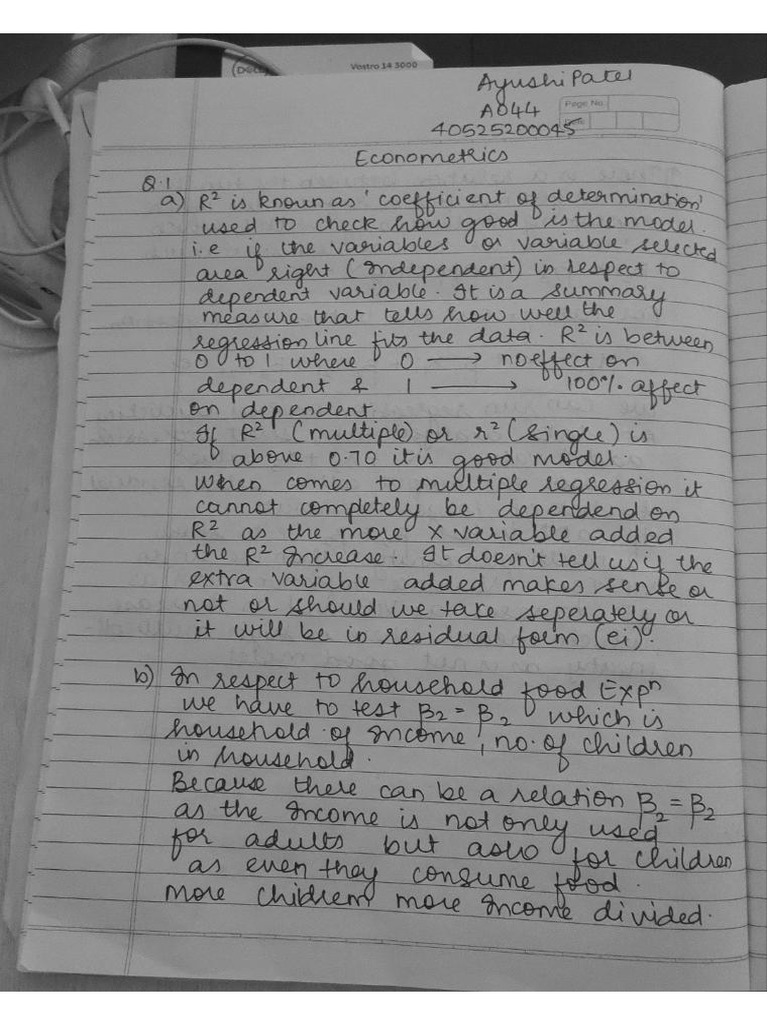 Vostro 14 3000
Ayushi Patel
A044
Page No.
40525200045
Econometrics
Q.1
a) R² is known as 'coefficient of determination'
used to check how good is the model.
i.e if the variables or variable selected
area right (Independent) in respect to
dependent variable. It is a summary
measure that tells how well the
regression line fits the data. R² is between
0 to 1 where 0 → no effect on
dependent & 1 → 100% affect
on dependent
If R² (multiple) or r² (single) is
above 0.70 it is good model.
When comes to multiple regression it
cannot completely be dependend on
R² as the more X variable added
the R² Increase. It doesn't tell us if the
extra variable added makes sense or
not or should we take seperately or
it will be in residual form (ei).
b) In respect to household food Expⁿ
we have to test β₂ = β₂ which is
household of Income, no. of children
in household.
Because there can be a relation β₂ = β₂
as the Income is not only used
for adults but also for children
as even they consume food.
more chidrem more Income divided.